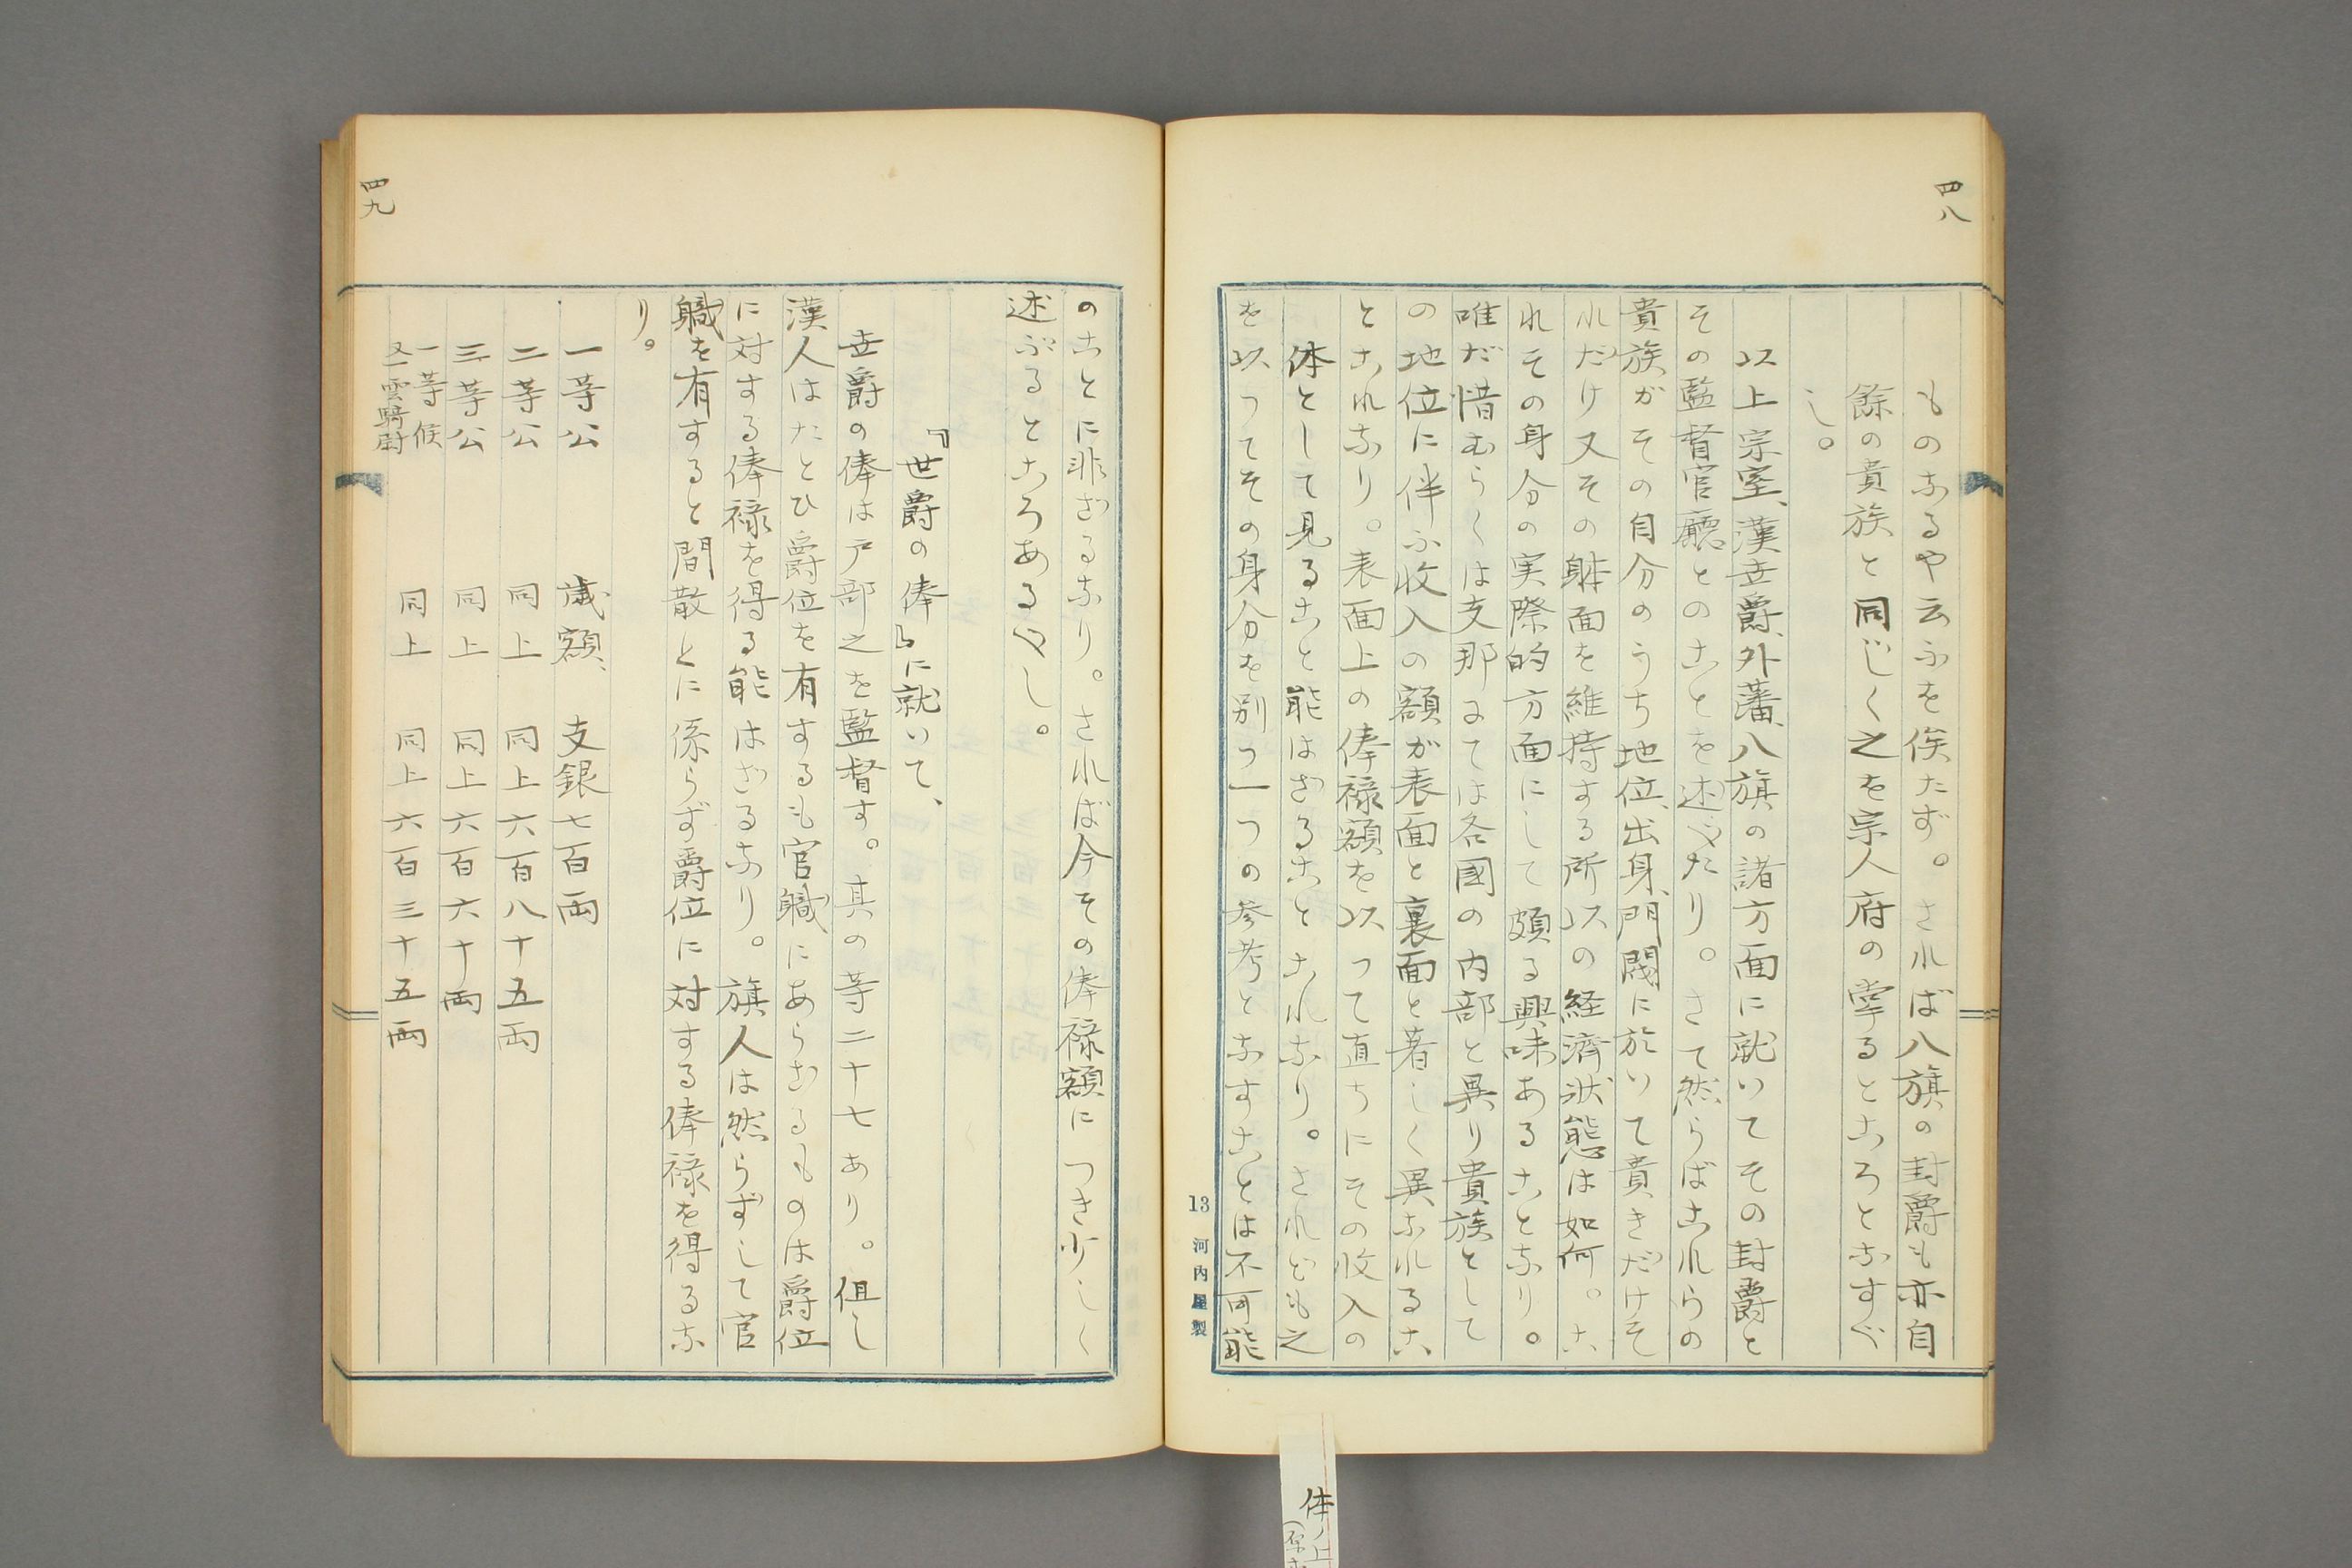 四八
ものなるや云ふを俟たず。されば八旗の封爵も亦自
餘の貴族と同じく之を宗人府の掌るところとなすべ
し。
以上宗室、漢世爵、外藩、八旗の諸方面に就いてその封爵と
その監督官廳とのことを述べたり。さて然らばこれらの
貴族がその自分のうち地位、出身、門閥に於いて貴きだけそ
れだけ又その躰面を維持する所以の経済状態は如何。こ
れその身分の実際的方面にして頗る興味あることなり。
唯だ惜むらくは支那にては各國の内部と異り貴族として
の地位に伴ふ收入の額が表面と裏面と著しく異なれるこ
とこれなり。表面上の俸禄額を以つて直ちにその收入の
体として見ること能はざることこれなり。されども之
を以つてその身分を別つ一つの参考となすことは不可能
13 河内屋製
四九
のことに非ざるなり。されば今その俸禄額につき少しく
述ぶるところあるべし。
『世爵の俸』に就いて、
世爵の俸は戸部之を監督す。其の等二十七あり。但し
漢人はたとひ爵位を有するも官職にあらざるものは爵位
に対する俸禄を得る能はざるなり。旗人は然らずして官
職を有すると間散とに係らず爵位に対する俸禄を得るな
り。
一等公 歳額、支銀七百両
二等公 同上 同上六百八十五両
三等公 同上 同上六百六十両
一等候
又一雲騎尉 同上 同上六百三十五両
体ノ上